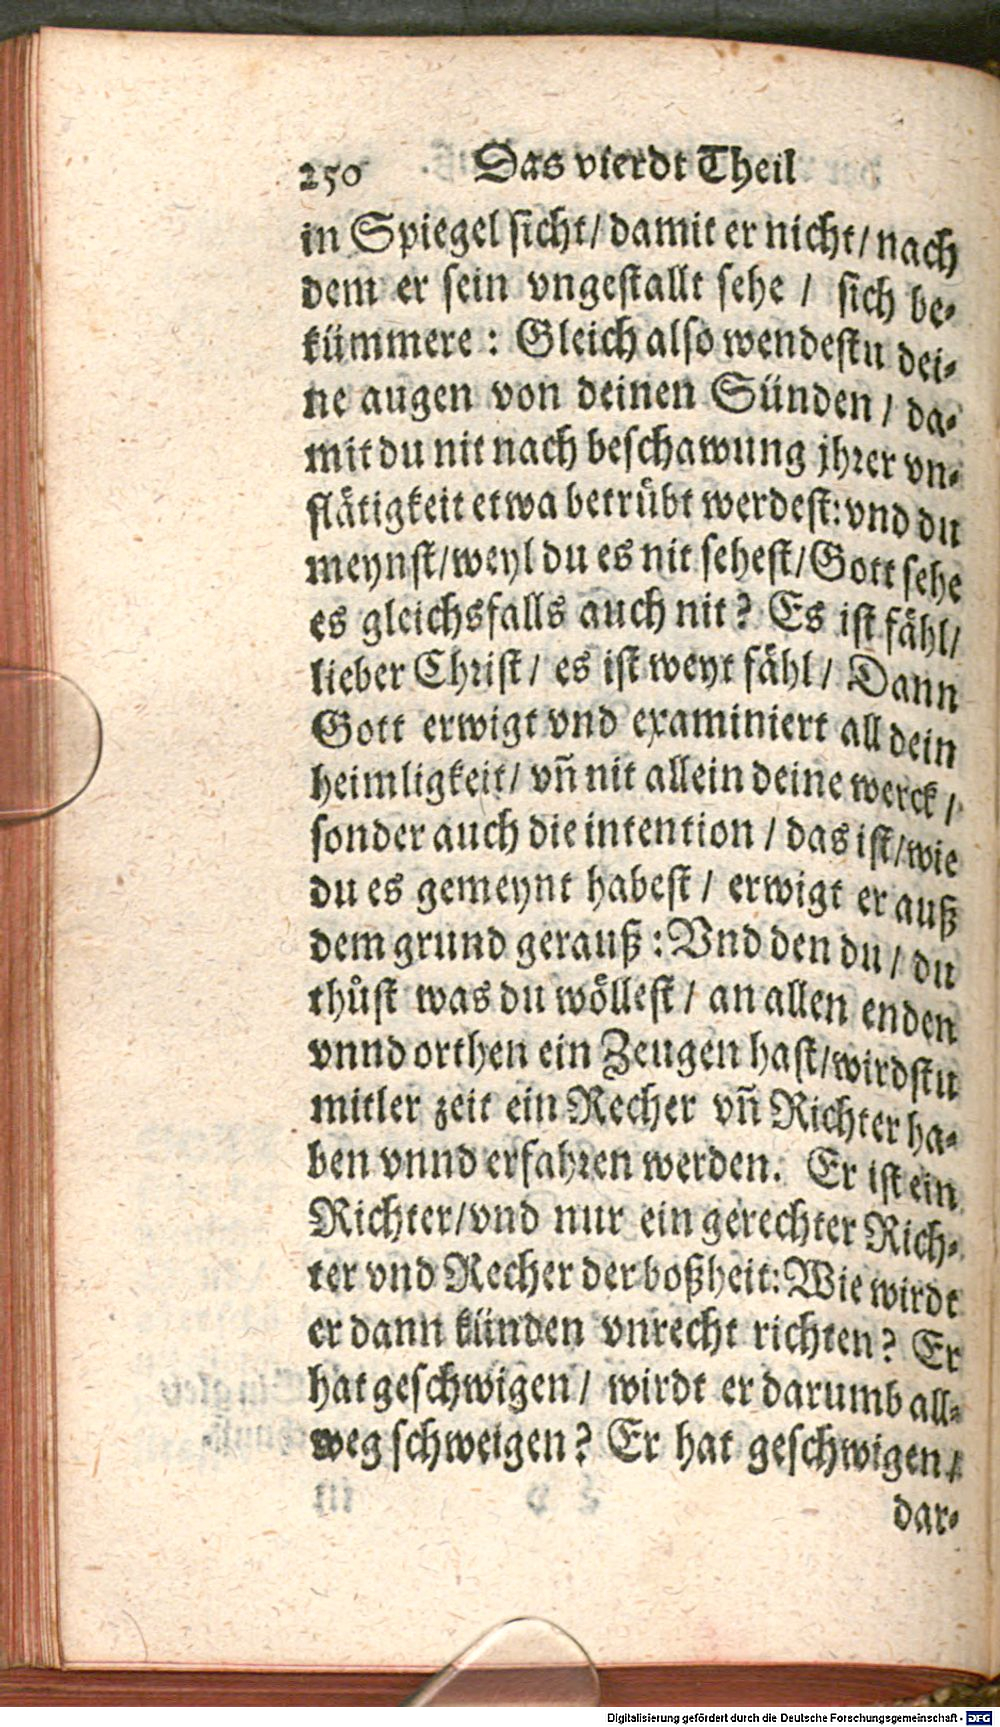 250 Das vierdt Theil
in Spiegel sicht/ damit er nicht/ nach
dem er sein vngestallt sehe / sich be-
kümmere : Gleich also wendestu dei-
ne augen von deinen Sünden / da-
mit du nit nach beschawung jhrer vn-
flätigkeit etwa betrübt werdest: vnd du
meynst/ weyl du es nit sehest/ Gott sehe
es gleichsfalls auch nit? Es ist fähl/
lieber Christ/ es ist weyt fähl/ Dann
Gott erwigt vnd examiniert all dein
heimligkeit/ vñ nit allein deine werck /
sonder auch die intention / das ist/ wie
du es gemeynt habest / erwigt er auß
dem grund gerauß : Vnd den du / du
thůst was du wöllest / an allen enden
vnnd orthen ein Zeugen hast/ wirdstu
mitler zeit ein Recher vñ Richter ha-
ben vnnd erfahren werden. Er ist ein
Richter/ vnd nur ein gerechter Rich-
ter vnd Recher der boßheit: Wie wirdt
er dann künden vnrecht richten? Er
hat geschwigen / wirdt er darumb all-
weg schweigen? Er hat geschwigen /
dar-
Digitalisierung gefördert durch die Deutsche Forschungsgemeinschaft - DFG